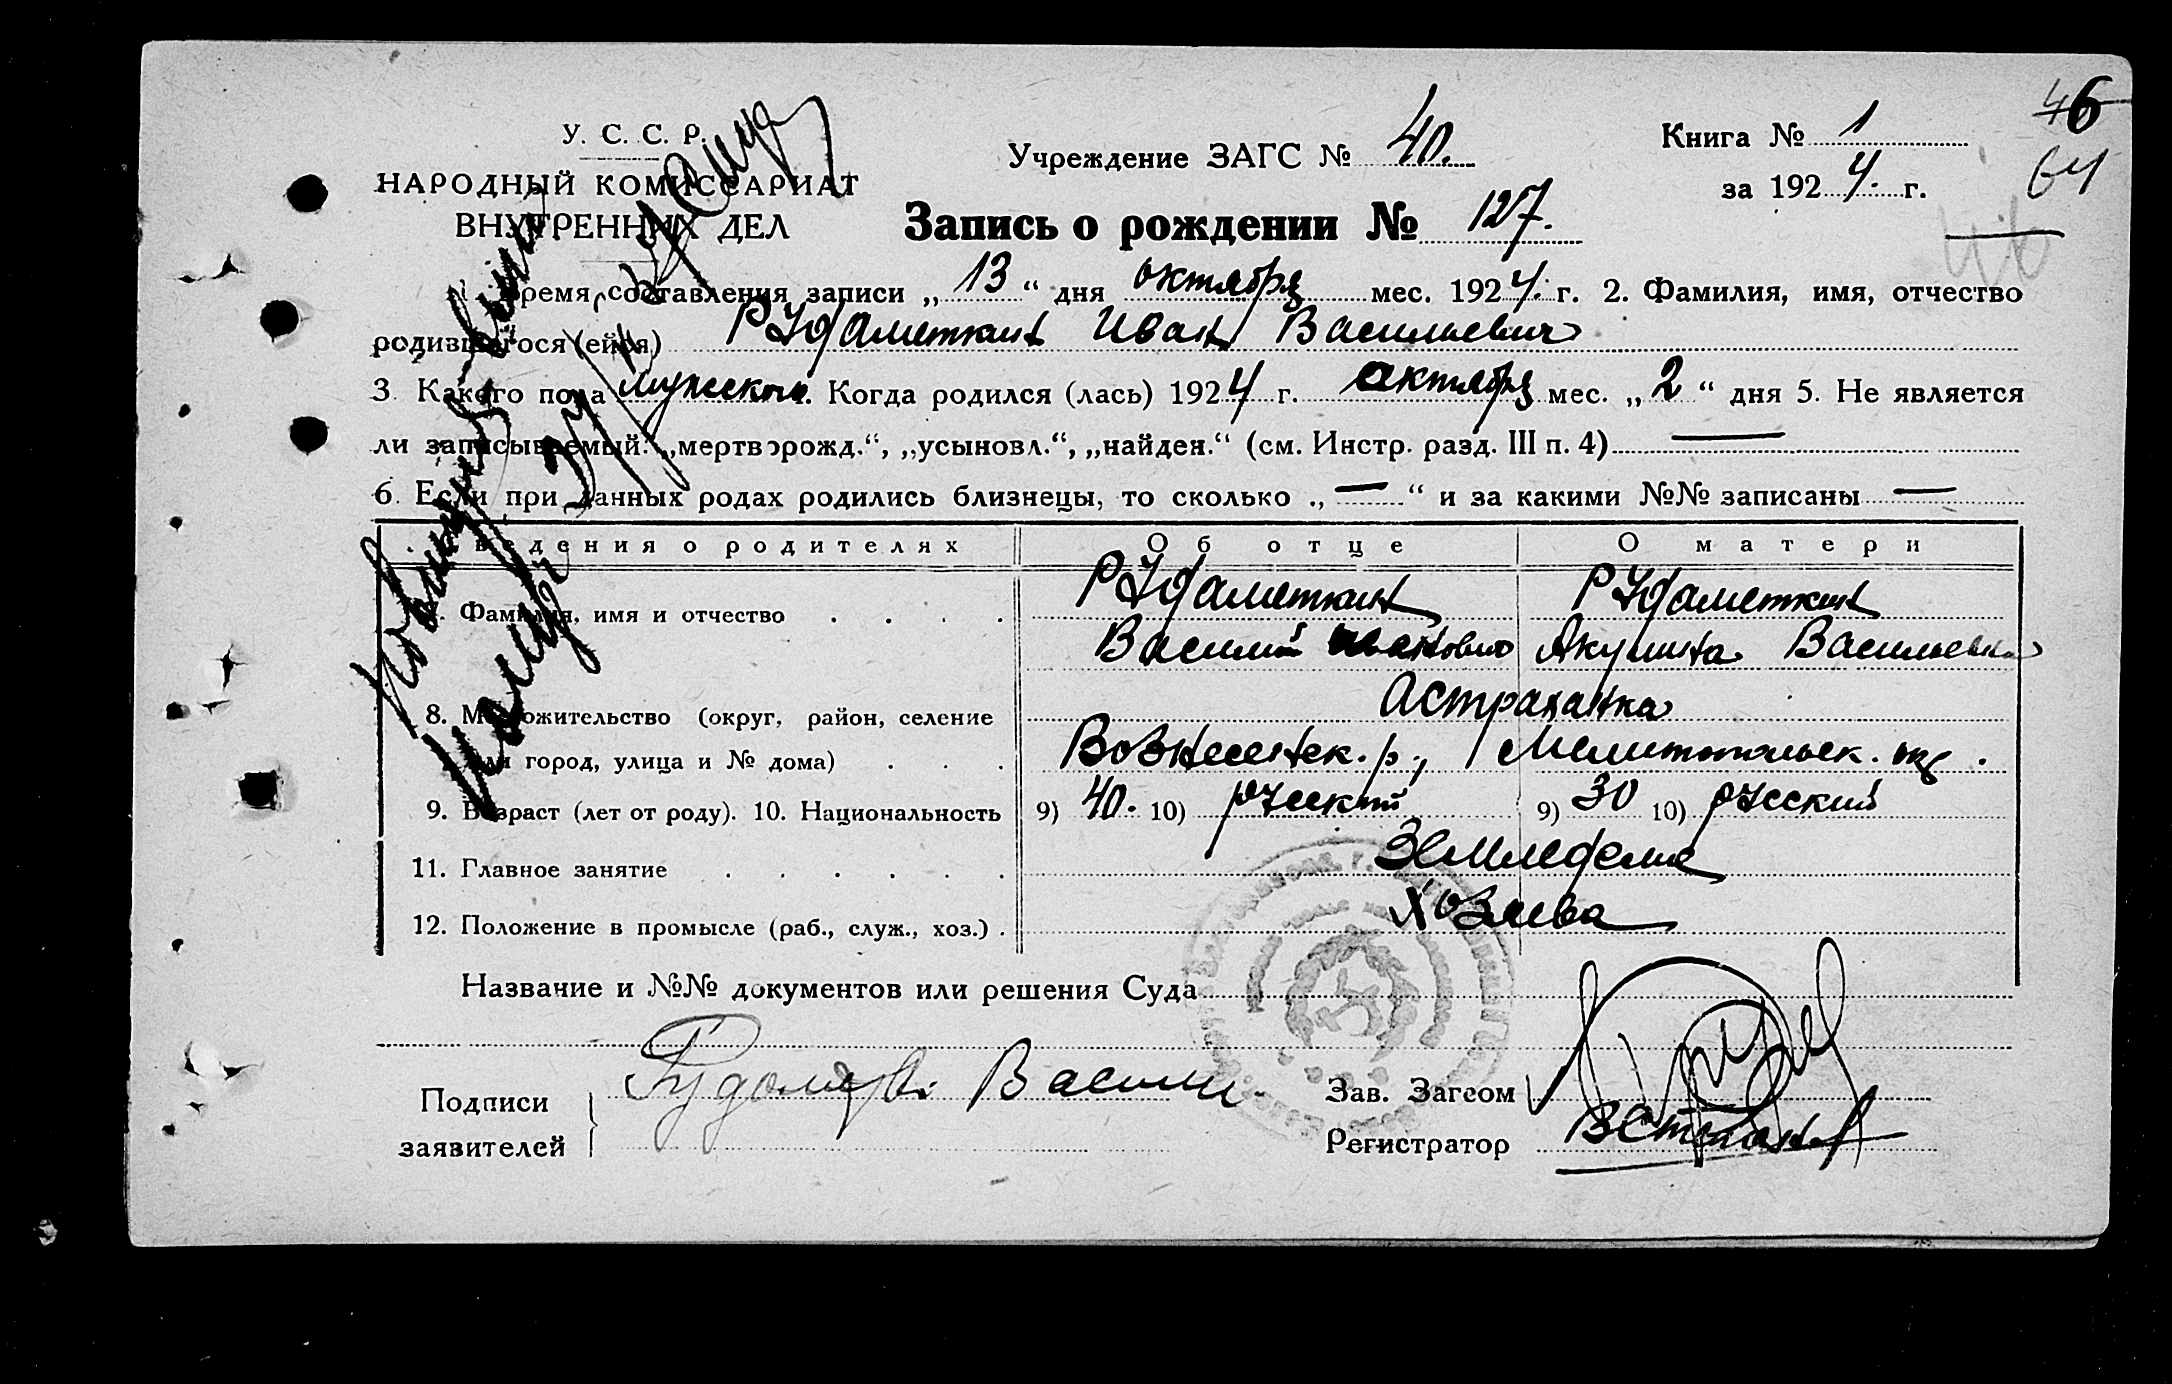 46
У. С. С. Р.
Учреждение ЗАГС № 40.
Книга № 1
НАРОДНЫЙ КОМИССАРИАТ
за 1924. г.
64
ВНУТРЕННИХ ДЕЛ
Запись о рождении № 127.
1. Время составления записи „13“ дня октября мес. 1924. г. 2. Фамилия, имя, отчество
родившегося (ейся) Рудаметкин Иван Васильевич
3. Какого пола мужского. Когда родился (лась) 1924 г. октября мес. „2“ дня 5. Не является
ли записываемый: „мертворожд.“, „усыновл.“, „найден.“ (см. Инстр. разд. III п. 4) —
6. Если при данных родах родились близнецы, то сколько „—“ и за какими №№ записаны —
Сведения о родителях Об отце О матери
7. Фамилия, имя и отчество . . . . Рудаметкин Рудаметкин
Василий Иванович Акулина Васильевна
8. Местожительство (округ, район, селение Астраханка
или город, улица и № дома) . . . Вознесенск. р., Мелитопольск. окр.
9. Возраст (лет от роду). 10. Национальность 9) 40. 10) русский 9) 30 10) русский
11. Главное занятие . . . . . . Земледелие
12. Положение в промысле (раб., служ., хоз.) . Хозяева
Название и №№ документов или решения Суда
Подписи
заявителей
Василий
Зав. Загсом
Регистратор